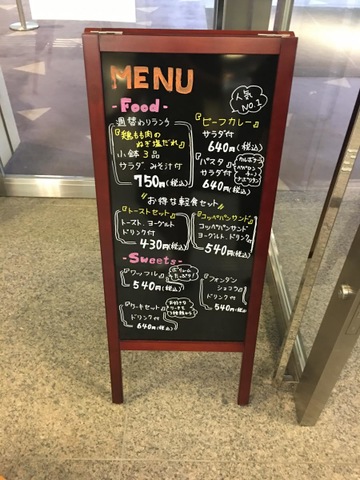 MENU
- Food -
週替わりランチ
『鶏もも肉の
ねぎ塩だれ』
小鉢3品
サラダ みそ汁付
750円(税込)
人気
NO.1
『ビーフカレー』
サラダ付
640円(税込)
『パスタ』
サラダ付
640円(税込)
カルボナーラ
ナポリタン
〃お得な軽食セット〃
『トーストセット』
トースト、ヨーグルト
ドリンク付
430円(税込)
『コッペパンサンド』
コッペパンサンド
ヨーグルト、ドリンク付
540円(税込)
- Sweets -
『ワッフル』
ボリューム
たっぷり!
540円(税込)
『ケーキセット』
ドリンク付
640円(税込)
お好きな
ケーキを
『フォンダン
ショコラ』
ドリンク付
540円(税込)